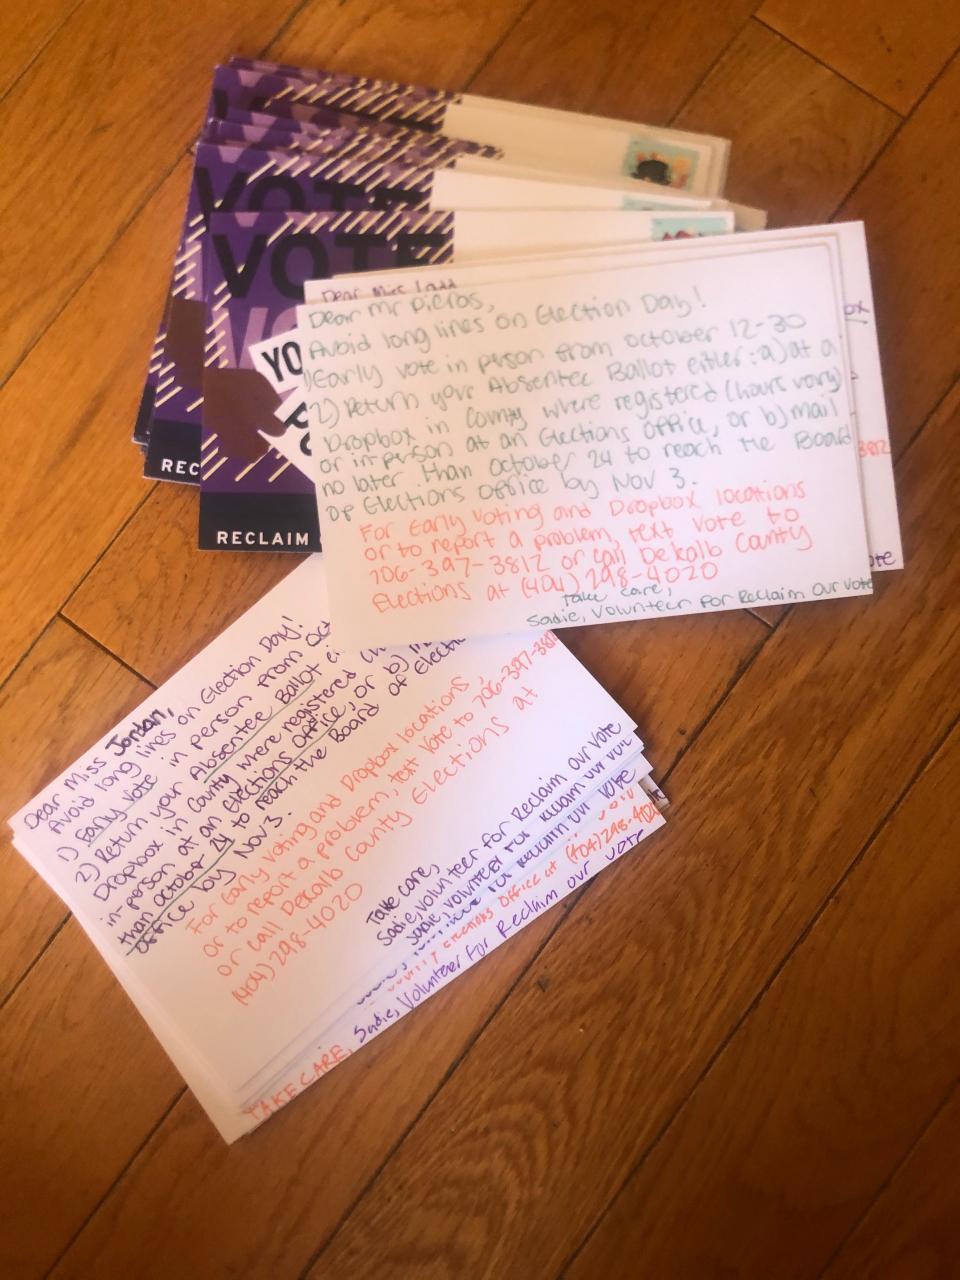 VOTE
VOTE
YO
REC
RECLAIM
Dear Miss Ladd
Dear Mr Picros,
Avoid long lines on Election Day!
1) Early vote in person from October 12-30
2) Return your Absentee Ballot either: a) at a
Dropbox in County where registered (hours vary)
or in person at an Elections Office, or b) mail
no later than October 24 to reach the Board
of Elections Office by Nov 3.
For Early Voting and Dropbox locations
or to report a problem, text Vote to
706-397-3812 or call Dekalb County
Elections at (404) 298-4020
Take care,
Sadie, Volunteer for Reclaim Our Vote
ox
3812
ote
Dear Miss Jordan,
Avoid long lines on Election Day!
1) Early vote in person from Oct
2) Return your Absentee Ballot ei
Dropbox in County where registered (h
in-person at an Elections Office, or b) m
than October 24 to reach the Board of Electi
Office by Nov 3.
For Early Voting and Dropbox locations,
or to report a problem, text Vote to 706-397-381
or call Dekalb County Elections at
(404) 298-4020
Take care,
Sadie, Volunteer for Reclaim Our Vote
Sadie, Volunteer for Reclaim Our Vote
Elections Office at (404) 298-402
TAKE CARE, Sadie, Volunteer for Reclaim our vote